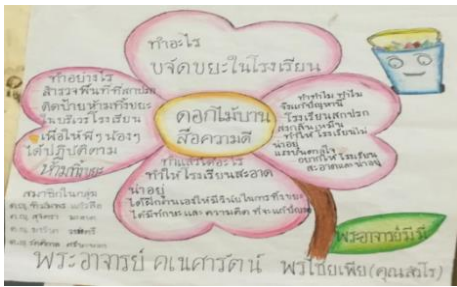 ทำอะไร
ขจัดขยะในโรงเรียน
ทำอย่างไร
สำรวจพื้นที่สกปรก
ติดป้ายห้ามทิ้งขยะ
ในบริเวรโรงเรียน
เพื่อให้พี่ๆน้องๆ
ได้ปฏิบัติตาม
ห้ามทิ้งขยะ
ดอกไม้บาน
สื่อความดี
ทำทำไม ทำไม
จึงแก้ปัญหานี้
โรงเรียนสกปรก
ทำให้โรงเรียนไม่
น่าอยู่
อยากให้โรงเรียน
สะอาดและน่าอยู่
ทำแล้วได้อะไร
ทำให้โรงเรียนสะอาด
น่าอยู่
ได้ฝึกตนเองให้มีวินัยในการทิ้งขยะ
ได้มีทักษะและความคิด
สมาชิกในกลุ่ม
พระอาจารย์
พระอาจารย์ คเนศารตน์ พรไชยเพีย (คุณสโร)